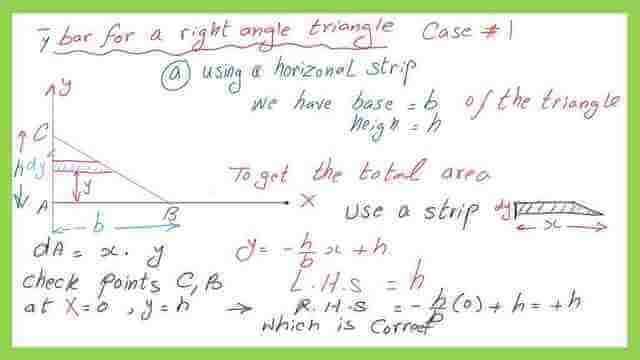 ȳ bar for a right angle triangle Case #1
ⓐ using a horizonal strip
we have base = b of the triangle
heigh = h
y
C
h dy
y
A
B
x
b
To get the total area
use a strip dy
x
dA = x. y
y = -h/b x + h
check points C, B
L.H.S = h
at X=0, y=h → R.H.S = -h/b (0) + h = +h
which is Correct